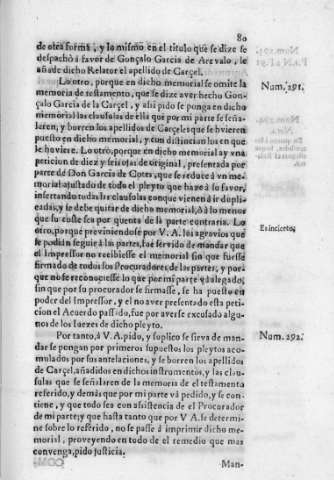 80
de otra forma, y lo mismo en el titulo que se dize se
despachò à favor de Gonçalo Garcia de Arevalo, le
añade dicho Relator el apellido de Carçel.
Lo otro, porque en dicho memorial se omite la
memoria de testamento, que se dize aver hecho Gon-
çalo Garcia de la Carçel, y assi pido se ponga en dicho
memorial las clausulas de ella que por mi parte se seña-
laren, y borren los apellidos de Carçeles que se huvieren
puesto en dicho memorial, y con distincion los en que
le huviere. Lo otro, porque en dicho memorial ay vna
peticion de diez y seis ojas de original, presentada por
parte de Don Garcia de Cotes, que se reduce à vn me-
morial ajustado de todo el pleyto que haze à su favor,
insertando todas las clausulas con que vienen à ir dupli-
cadas, y se debe quitar de dicho memorial, ò à lo menos
que su coste sea por quenta de la parte contraria. Lo
otro, porque previniendose por V. A. los agravios que
se podian seguir à las partes, fue servido de mandar que
el Impressor no recibiesse el memorial sin que fuesse
firmado de todos los Procuradores de las partes, y por-
que no se reconociesse lo que por mi parte và alegado,
sin que por su procurador se firmasse, se ha puesto en
poder del Impressor, y el no aver presentado esta peti-
cion el Acuerdo passado, fue por averse escusado algu-
nos de los Iuezes de dicho pleyto.
Por tanto, à V. A. pido, y suplico se sirva de man-
dar se pongan por primeros supuestos los pleytos acu-
mulados por sus antelaciones, y se borren los apellidos
de Carçel, añadidos en dichos instrumentos, y las clau-
sulas que se señalaren de la memoria de el testamento
referido, y demàs que por mi parte và pedido, y se con-
tiene, y que todo sea con asistencia de el Procurador
de mi parte; y que hasta tanto que por V. A. se determi-
ne sobre lo referido, no se passe à imprimir dicho me-
morial, proveyendo en todo de el remedio que mas
convenga, pido justicia.
Man-
Num. 291.
Es incierto.
Num. 292.